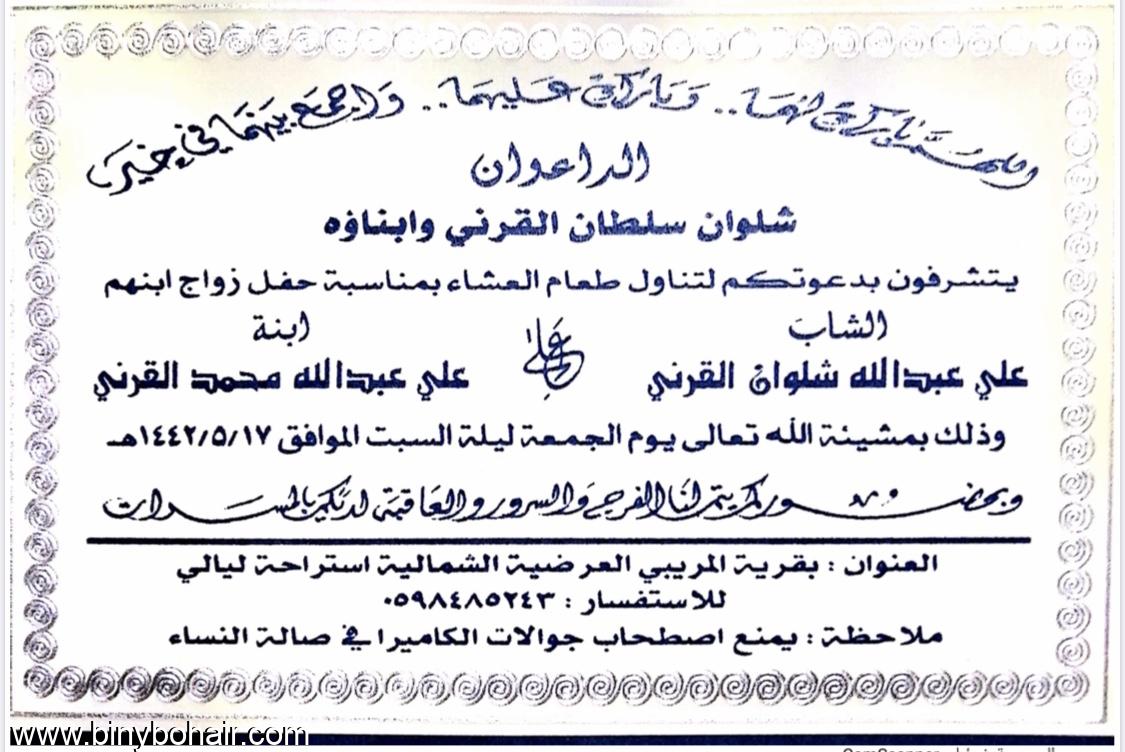 اللهم بارك لهما .. وبارك عليهما .. واجمع بينهما في خير
الداعوان
شلوان سلطان القرني وابناؤه
يتشرفون بدعوتكم لتناول طعام العشاء بمناسبة حفل زواج ابنهم
الشاب
علي عبدالله شلوان القرني
على
ابنة
علي عبدالله محمد القرني
وذلك بمشيئة الله تعالى يوم الجمعة ليلة السبت الموافق ١٤٤٢/٥/١٧هـ
وبحضوركم يتم لنا الفرح والسرور والعاقبة لديكم بالمسرات
العنوان : بقرية المريبي العرضية الشمالية استراحة ليالي
للاستفسار : ٠٥٩٨٤٨٥٢٤٣
ملاحظة : يمنع اصطحاب جوالات الكاميرا في صالة النساء
www.binybohair.com